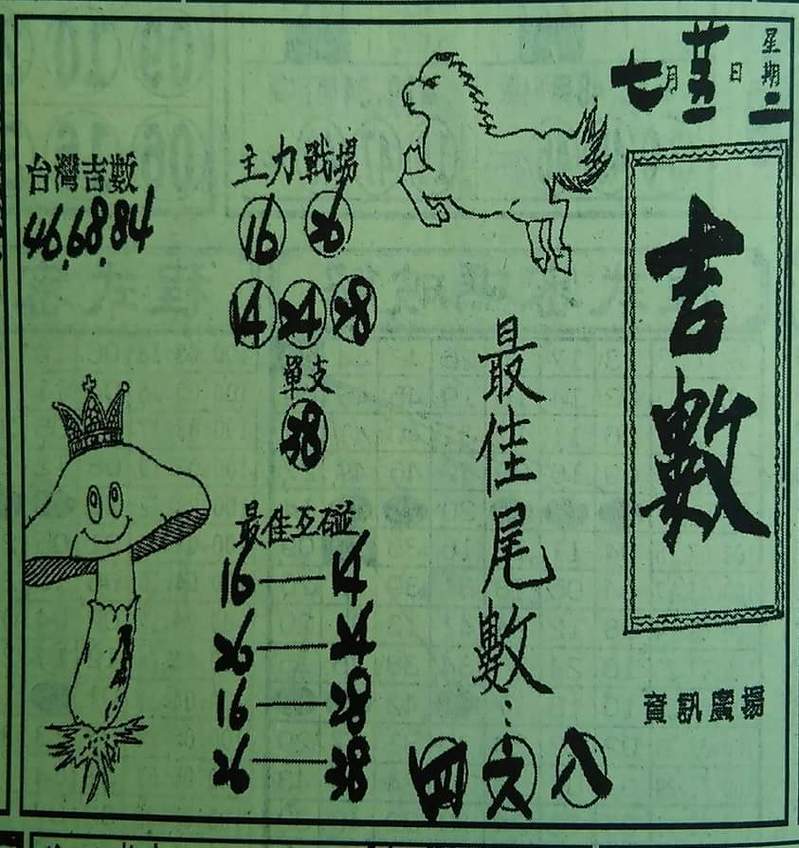 七月廿五日 星期二
吉數
資訊廣場
最佳尾數：四六八
主力戰場
16 26
14 24 28
單支
28
最佳互碰
16——14
26——24
16——28
26——28
台灣吉數
46.68.84